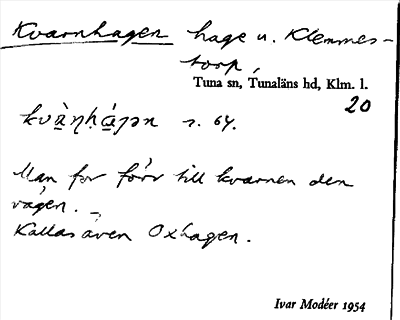 Kvarnhagen hage u. Klemmes-
torp,
Tuna sn, Tunaläns hd, Klm. l.
20
kvà̱ṇḥá̱ɟən s. 64.
Man for förr till kvarnen den
vägen. –
Kallas även Oxhagen.
Ivar Modéer 1954